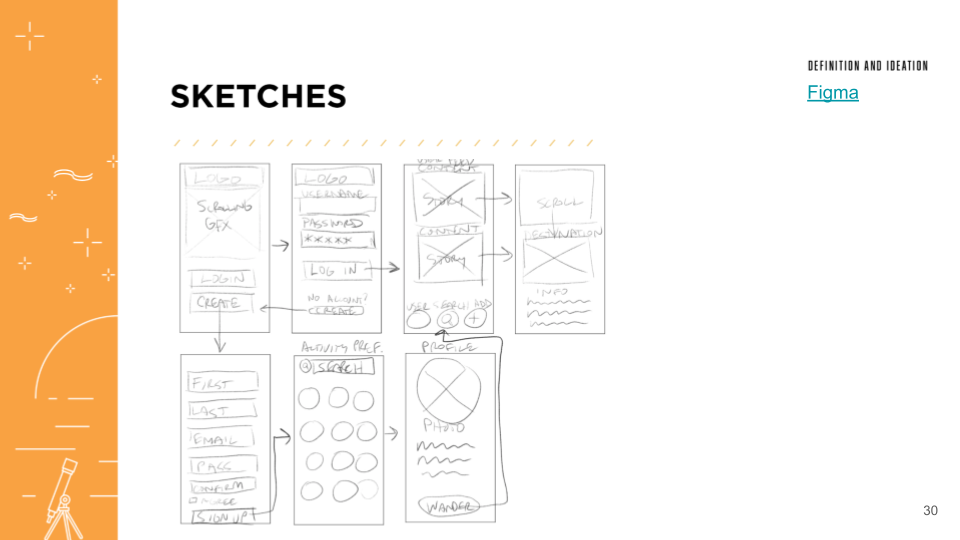 DEFINITION AND IDEATION
Figma
SKETCHES
LOGO
GFX
LOGIN
CREATE
LOGO
USERNAME
PASSWORD
*****
LOG IN
NO ACCOUNT?
CREATE
CONTENT
STORY
CONTENT
STORY
USER SEARCH ADD
SCROLL
DESTINATION
INFO
FIRST
LAST
EMAIL
PASS
CONFIRM
SIGN UP
ACTIVITY PREF.
SEARCH
PROFILE
PHOTO
WANDER
30